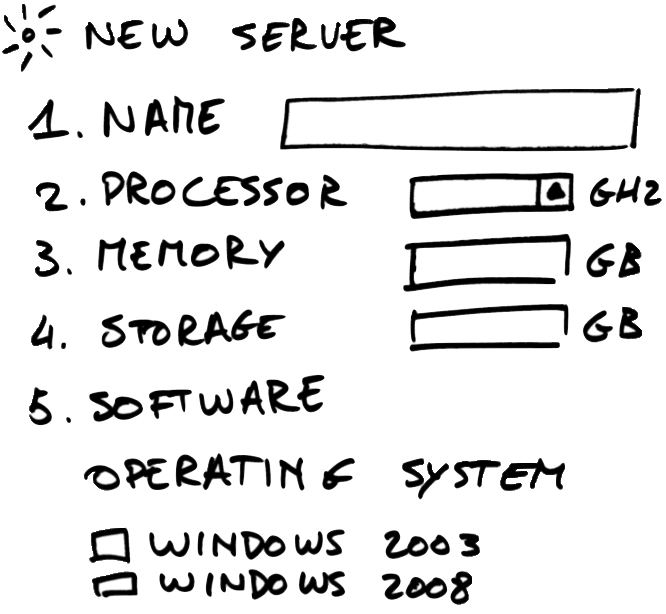 NEW SERVER
1. NAME
2. PROCESSOR GHZ
3. MEMORY GB
4. STORAGE GB
5. SOFTWARE
OPERATING SYSTEM
WINDOWS 2003
WINDOWS 2008